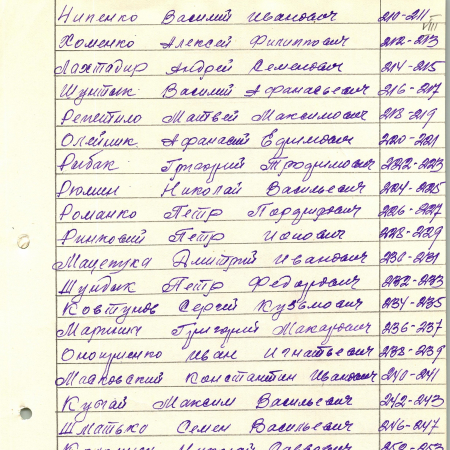 Нипенко Василий Иванович 210-211 VIII
Хоменко Алексей Филиппович 212-213
Лахтадир Андрей Семенович 214-215
Шултык Василий Афанасьевич 216-217
Репетило Матвей Максимович 218-219
Олейник Афанасий Ефимович 220-221
Рыбак Григорий Трофимович 222-223
Рюмин Николай Васильевич 224-225
Романко Петр Порфирович 226-227
Петр Ионович 228-229
Мацепука Дмитрий Иванович 230-231
Шундик Петр Федорович 232-233
Ковтунов Сергей Кузьмович 234-235
Маринич Григорий Макарович 236-237
Оноприенко Иван Игнатьевич 238-239
Масковский Константин Иванович 240-241
Максим Васильевич 242-243
Шматько Семен Васильевич 246-247
Николай Саввович 250-253